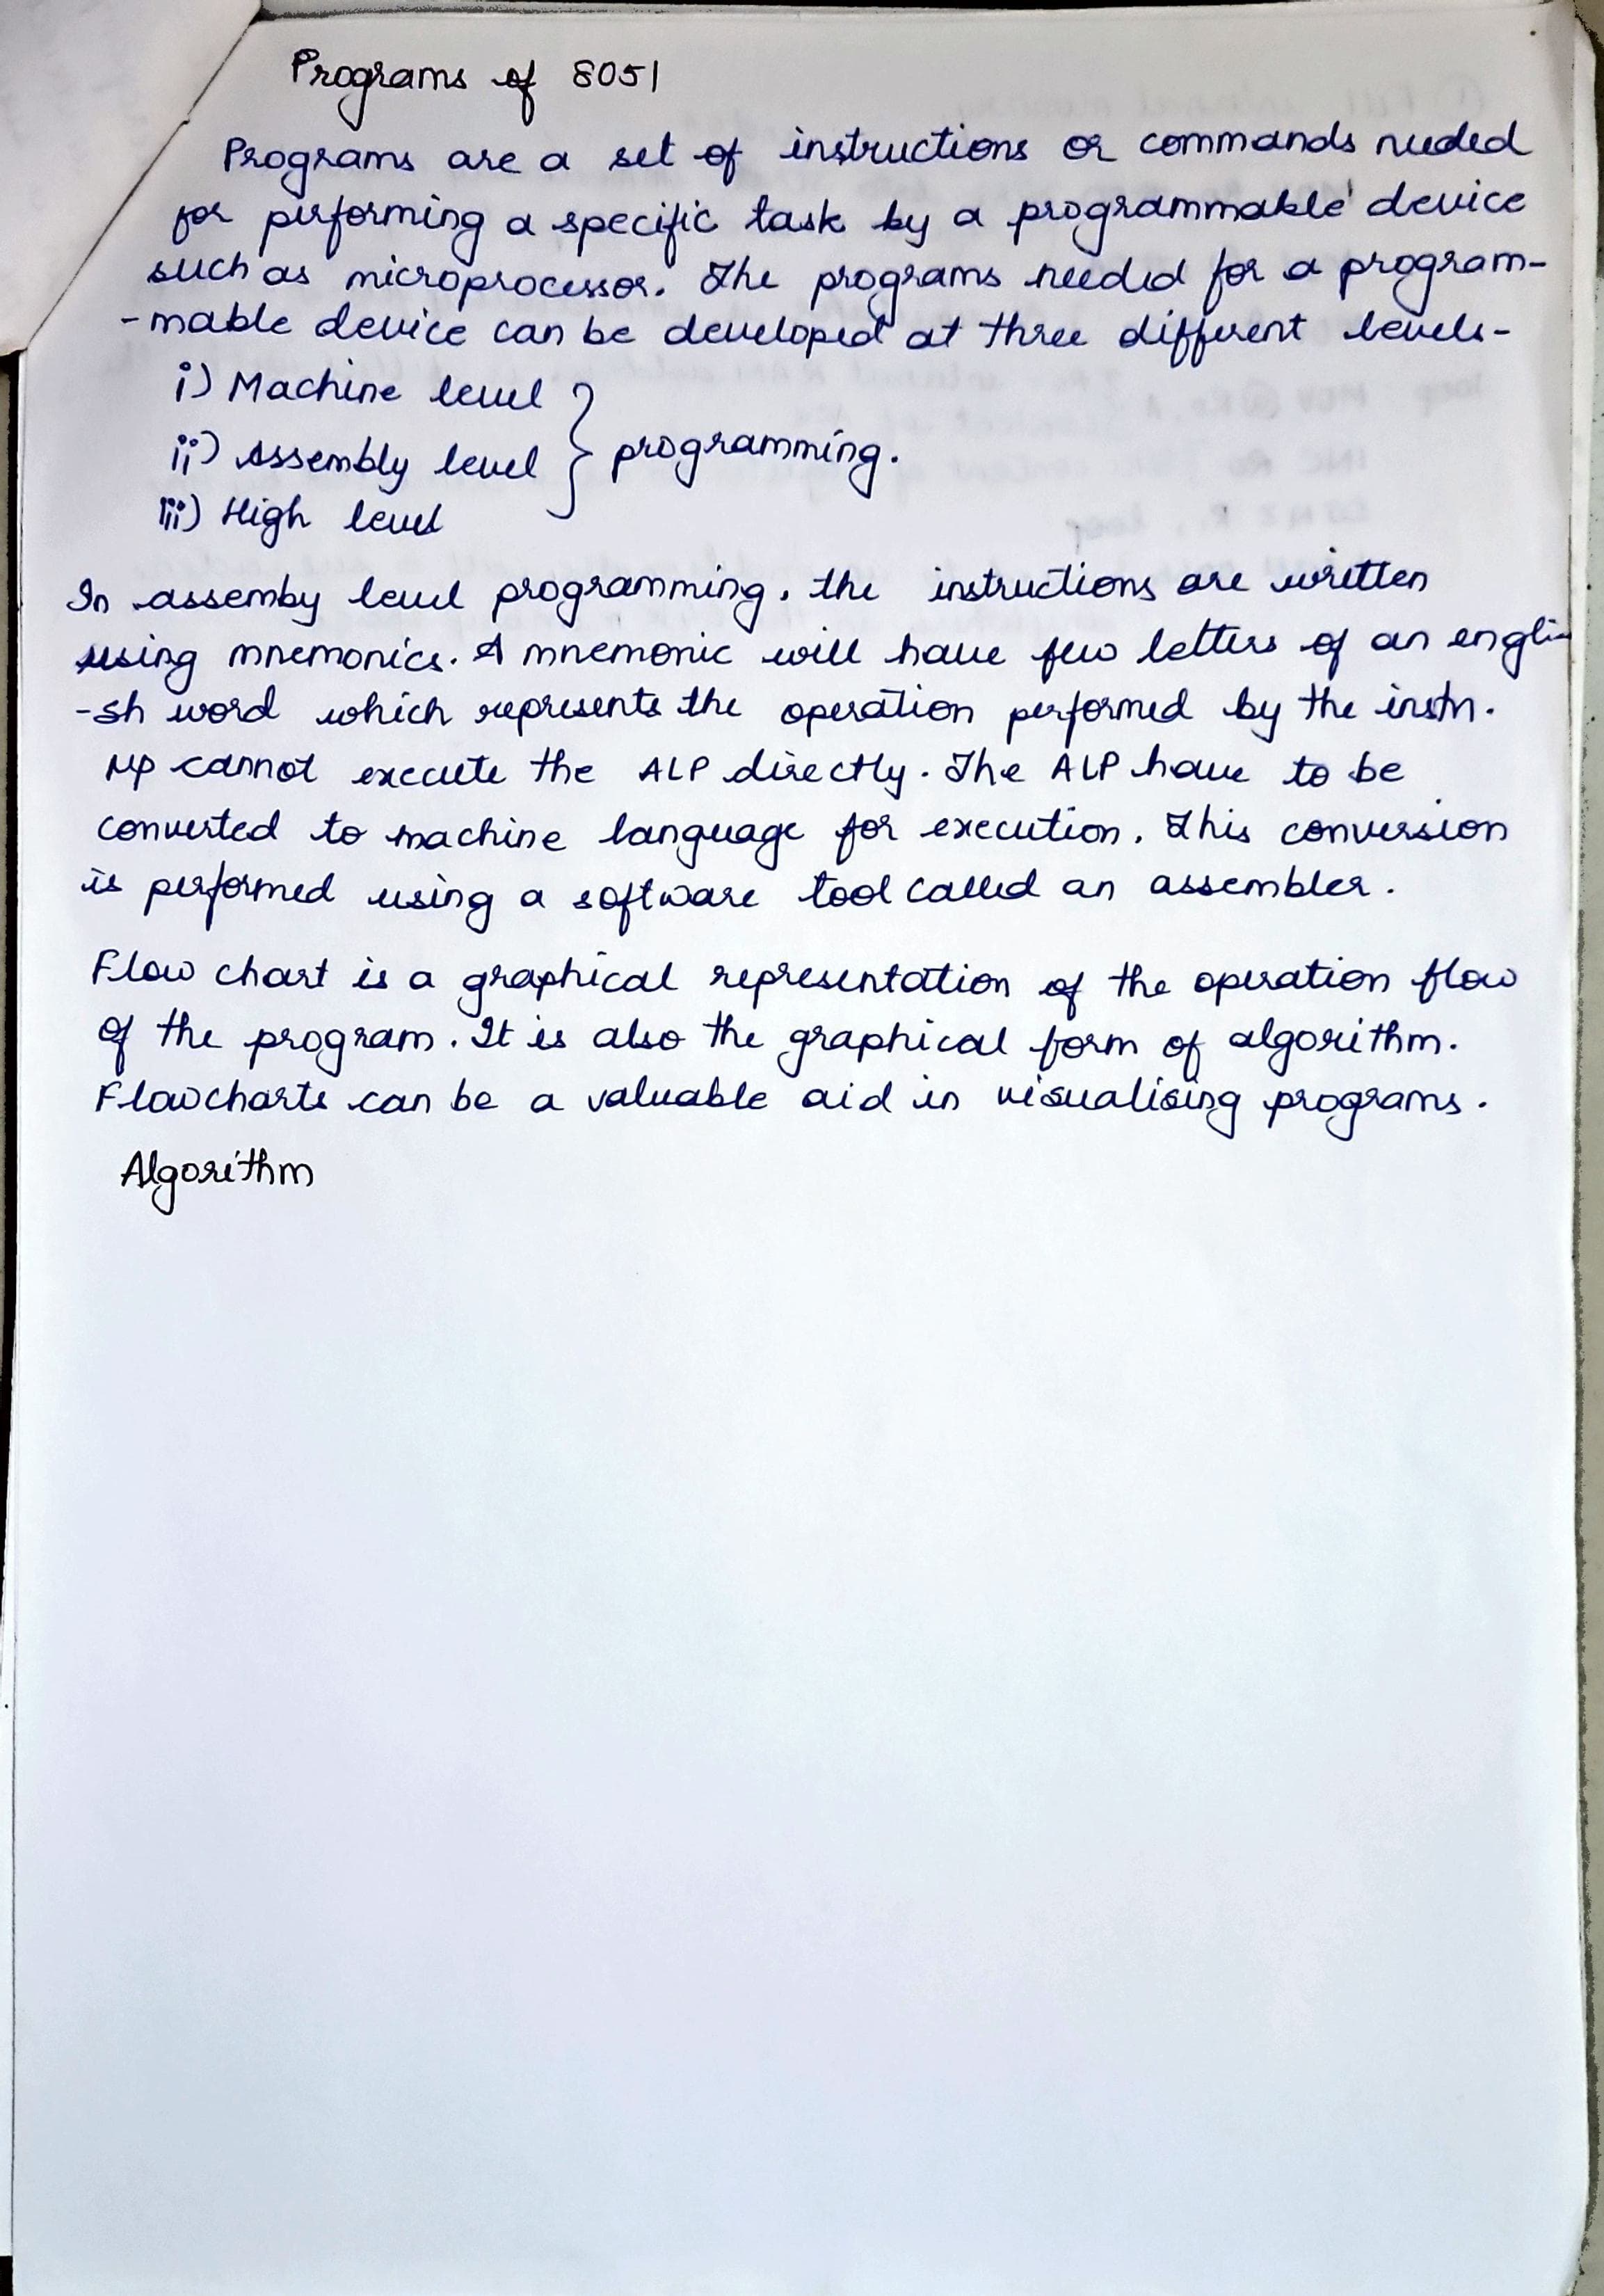 Programs of 8051
Programs are a set of instructions or commands needed
for performing a specific task by a programmable device
such as microprocessor. The programs needed for a program-
-mable device can be developed at three different levels-
i) Machine level
ii) Assembly level } programming.
iii) High level
In assemby level programming, the instructions are written
using mnemonics. A mnemonic will have few letters of an engli-
-sh word which represents the operation performed by the instn.
μp cannot execute the ALP directly. The ALP have to be
converted to machine language for execution. This conversion
is performed using a software tool called an assembler.
Flow chart is a graphical representation of the operation flow
of the program. It is also the graphical form of algorithm.
Flowcharts can be a valuable aid in visualising programs.
Algorithm